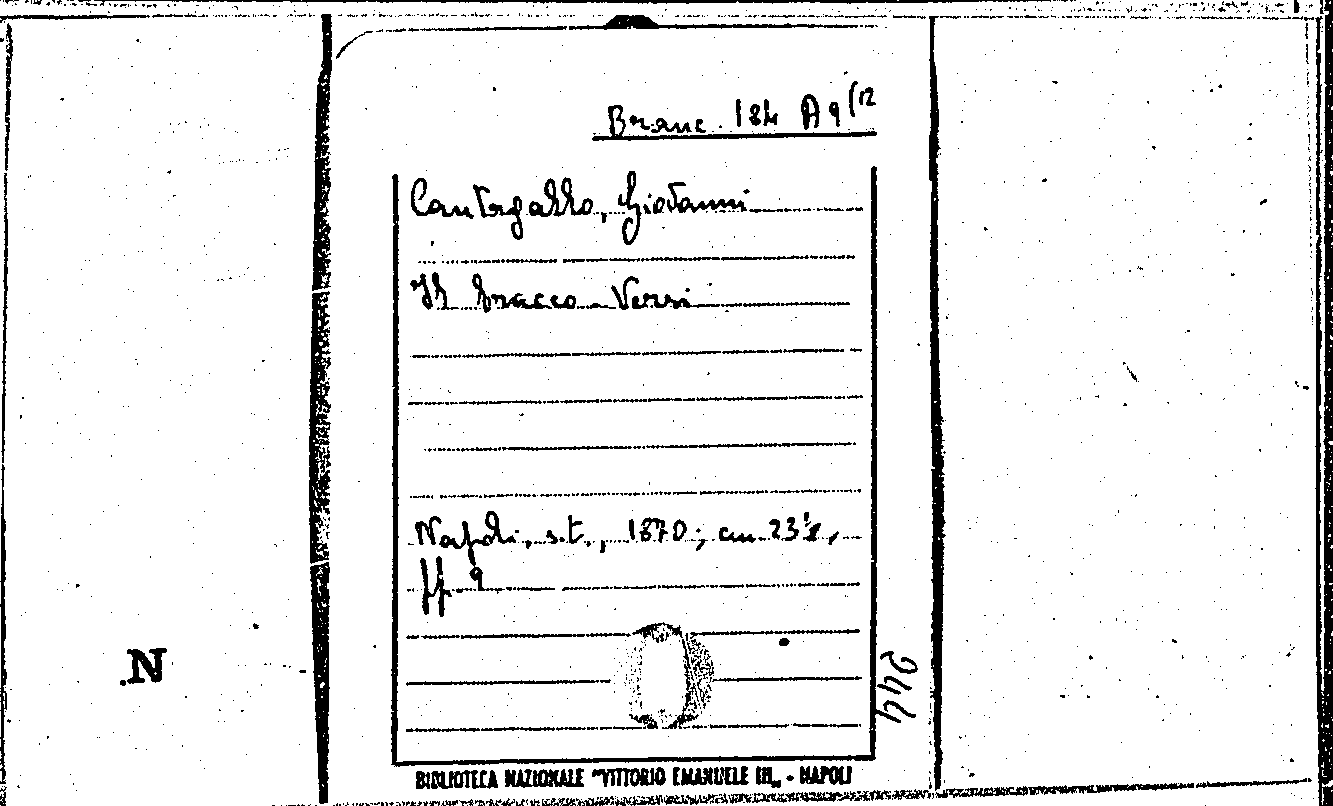 Branc. 184 A 9 (12
Cantagallo, Giovanni
Il bracco - Versi
Napoli, s.t., 1870; cm 23½,
ff. 9
N
244
BIBLIOTECA NAZIONALE "VITTORIO EMANUELE III„ - NAPOLI